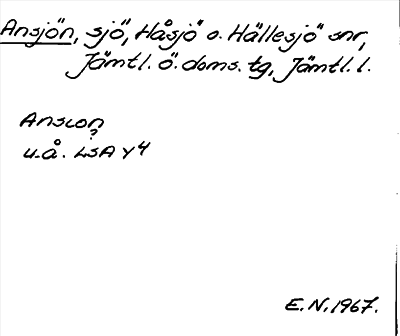 Ansjön, sjö, Håsjö o. Hällesjö snr,
Jämtl. ö. doms. tg, Jämtl. l.
Anscon
?
u.å. LSA Y4
E.N. 1967.